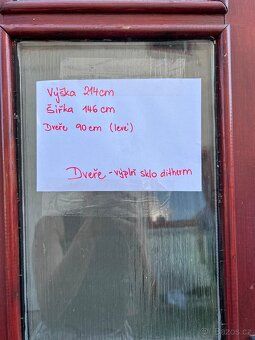 Výška 214cm
Šířka 146 cm
Dveře 90cm (levé)
Dveře - výplň sklo ditherm
Bazos.cz